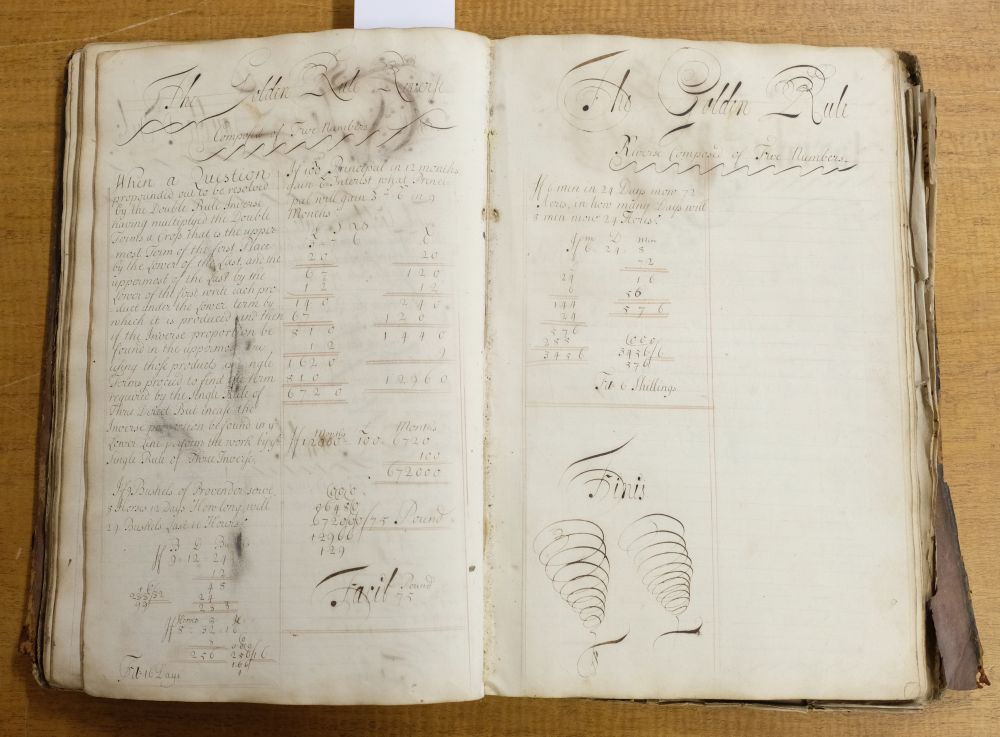 The Golden Rule Reverse
Composed of Five Numbers
When a Question
propounded out to be resolved
by the Double Rule Inverse
having multiplyed the Double
Terms a Cross that is the upper
most Term of the first Place
by the Lower of the Last, and the
uppermost of the Last by the
Lower of the first write each pro
duct under the Lower term by
which it is produced and then
if the Inverse proportion be
found in the uppermost Line
using those products as single
Terms proceed to find the term
required by the Single Rule of
Three Direct But incase the
Inverse proportion be found in ye
Lower Line perform the work by ye
Single Rule of Three Inverse,
If 9 Bushels of Provender serve
8 Horses 12 Days How long will
24 Bushels Last 16 Horses
B D B
If 9 - 12 - 24
12
48
24
288
If 8 - 32 - 16
8
256
256/16
Ft 16 Days
If 100 Principal in 12 months
gain 6 Interest what Princi
pal will gain 3 - 7 - 6 in 9
Months
20 20
67 120
12 12
140 240
67 120
810 1440
12 9
1620
810 12960
6720
Months Months
If 12960 - 100 - 6720
100
672000
672000/75 Pound
12966
129
Facit Pound
75
The Golden Rule
Reverse Composed of Five Numbers
If 6 men in 24 Days mow 72
Acres, in how many Days will
8 men mow 24 Acres
If m D men
6 - 24 - 8
72
24 16
6 56
144 576
24
576
288
3456
3456/6
576
Ft 6 Shillings
Finis